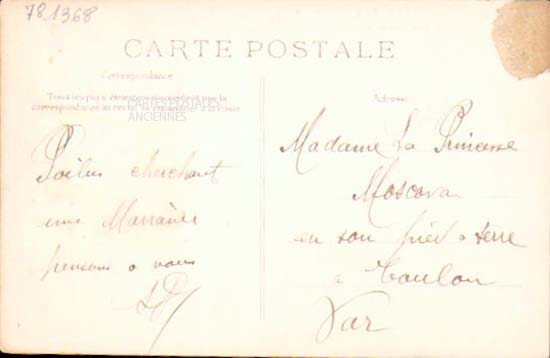 781368
CARTE POSTALE
Correspondance
Tous les pays étrangers n'acceptent pas la
correspondance au recto, se renseigner à la Poste
CARTES POSTALES
ANCIENNES
Adresse
Poilus cherchant
une Marraine
pensons a vous
Madame La Princesse
Moscova
en son pied a terre
a Toulon
Var